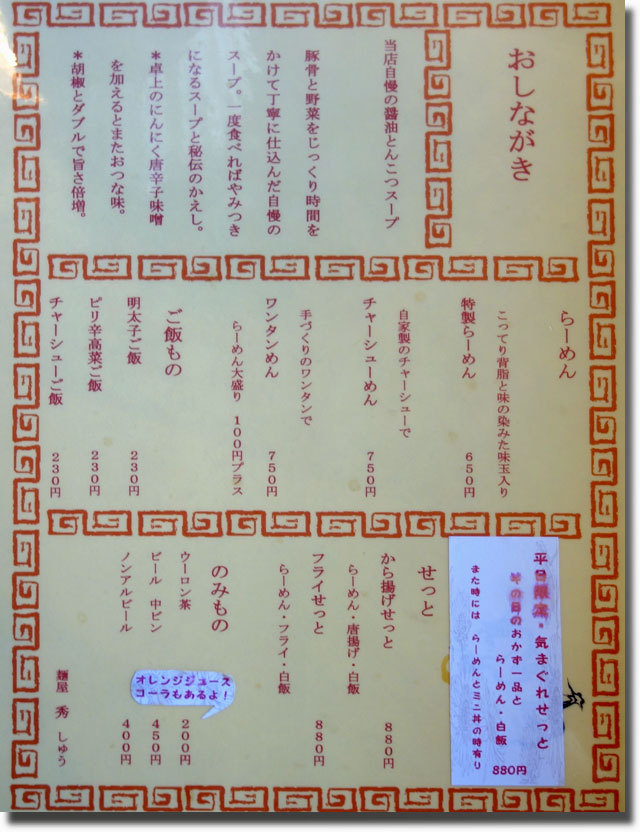 おしながき
当店自慢の醤油とんこつスープ
豚骨と野菜をじっくり時間を
かけて丁寧に仕込んだ自慢の
スープ。一度食べればやみつき
になるスープと秘伝のかえし。
＊卓上のにんにく唐辛子味噌
を加えるとまたおつな味。
＊胡椒とダブルで旨さ倍増。
らーめん
こってり背脂と味の染みた味玉入り
特製らーめん　６５０円
自家製のチャーシューで
チャーシューめん　７５０円
手づくりのワンタンで
ワンタンめん　７５０円
らーめん大盛り　１００円プラス
ご飯もの
明太子ご飯　２３０円
ピリ辛高菜ご飯　２３０円
チャーシューご飯　２３０円
平日限定・気まぐれせっと
その日のおかず一品と
らーめん・白飯
880円
また時には、らーめんとミニ丼の時有り
せっと
から揚げせっと　８８０円
らーめん・唐揚げ・白飯
フライせっと　８８０円
らーめん・フライ・白飯
のみもの
ウーロン茶　２００円
ビール　中ビン　４５０円
ノンアルビール　４００円
オレンジジュース
コーラもあるよ！
麺屋　秀　しゅう